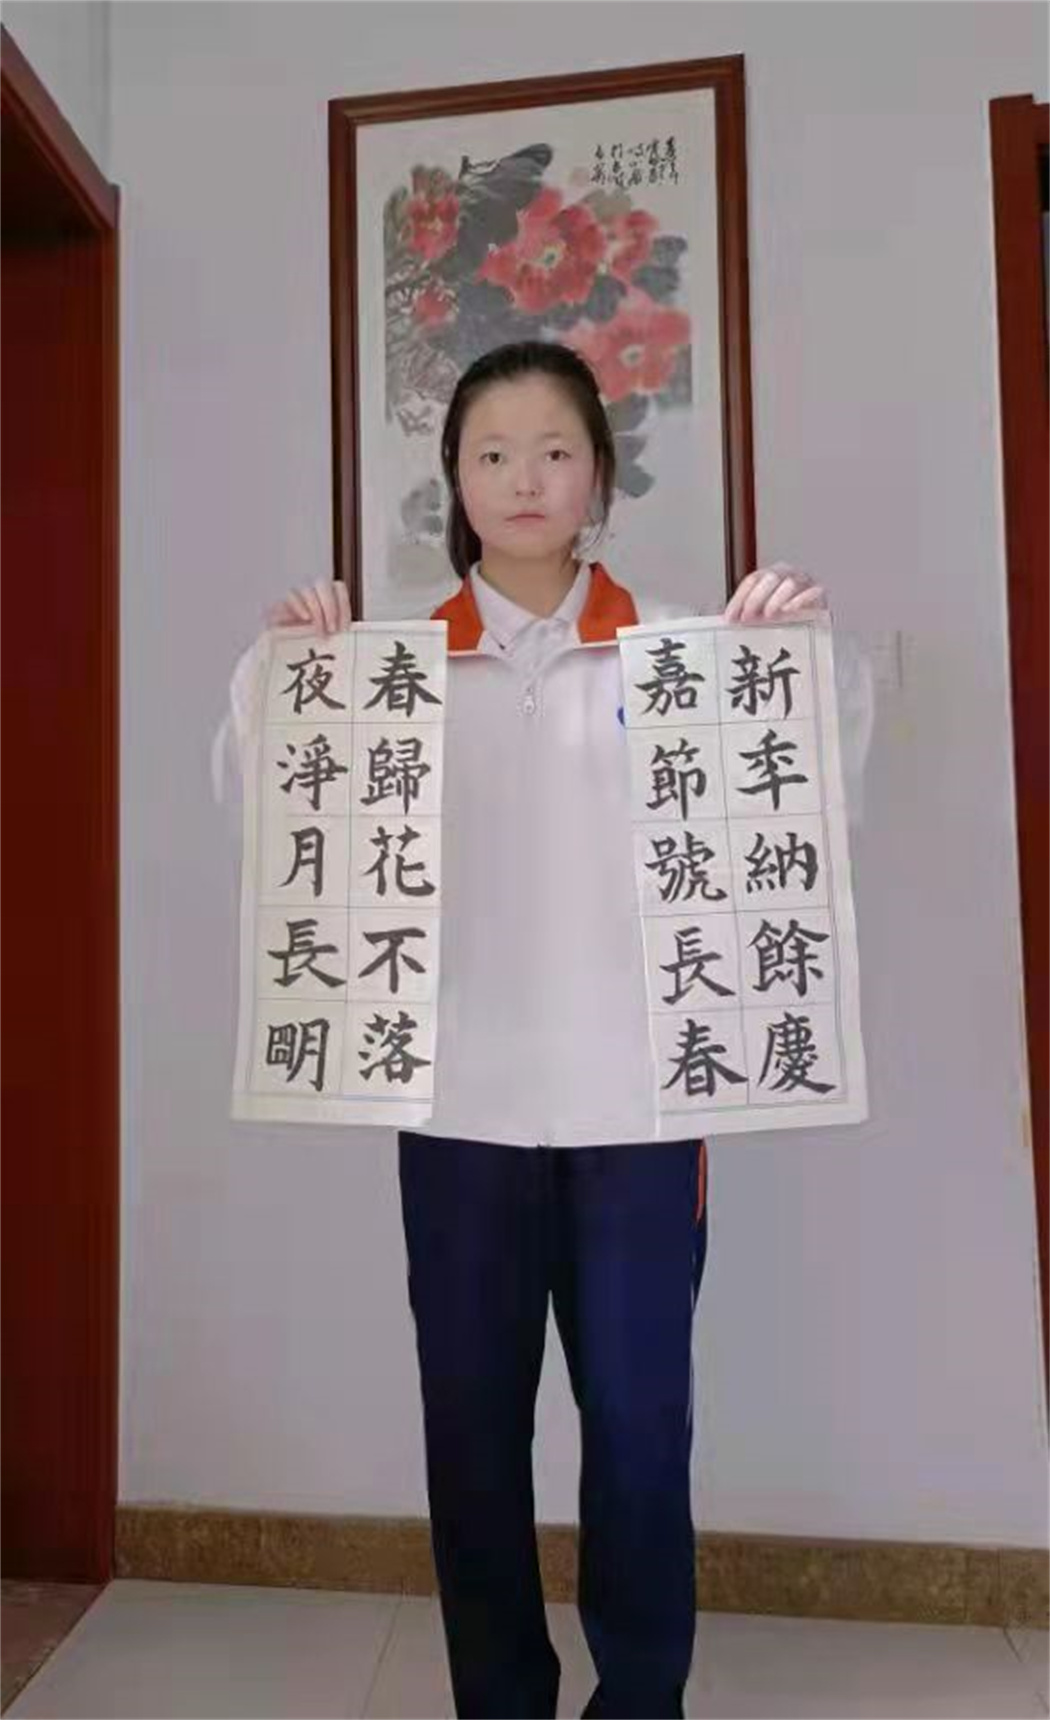 新年納餘慶
嘉節號長春
春歸花不落
夜淨月長明